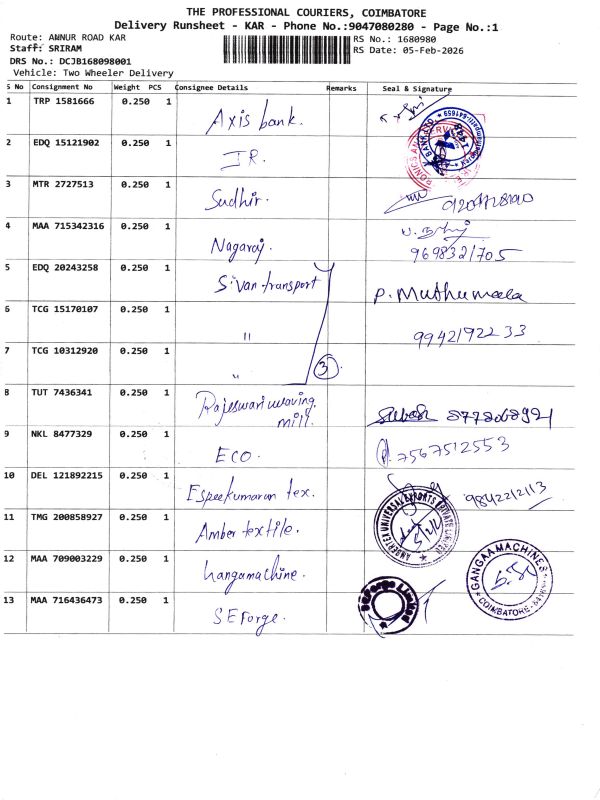 THE PROFESSIONAL COURIERS, COIMBATORE
Delivery Runsheet - KAR - Phone No.:9047080280 - Page No.:1
Route: ANNUR ROAD KAR
RS No.: 1680980
Staff: SRIRAM
RS Date: 05-Feb-2026
DRS No.: DCJB168098001
Vehicle: Two Wheeler Delivery
S No Consignment No Weight PCS Consignee Details Remarks Seal & Signature
1 TRP 1581666 0.250 1 Axis bank.
2 EDQ 15121902 0.250 1 IR.
3 MTR 2727513 0.250 1 Sudhir.
4 MAA 715342316 0.250 1 Nagaraj. 9698321705
5 EDQ 20243258 0.250 1 Sivan transport P. Muthumala
6 TCG 15170107 0.250 1 " 9942192233
7 TCG 10312920 0.250 1 " 3
8 TUT 7436341 0.250 1 Rajeswari weaving mill.
9 NKL 8477329 0.250 1 ECO. 7567512553
10 DEL 121892215 0.250 1 Espeekumaran tex. 9842212113
11 TMG 200858927 0.250 1 Amber textile.
12 MAA 709003229 0.250 1 Gangamachine. GANGAA MACHINES COIMBATORE
13 MAA 716436473 0.250 1 SEForge. SEForge Limited